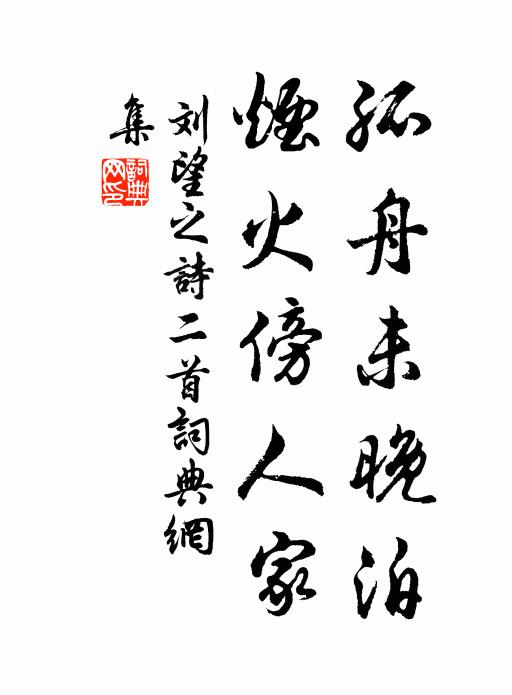 孤舟未晚泊
煙火傍人家
刘望之詩二首詞典網
集
詞典網印